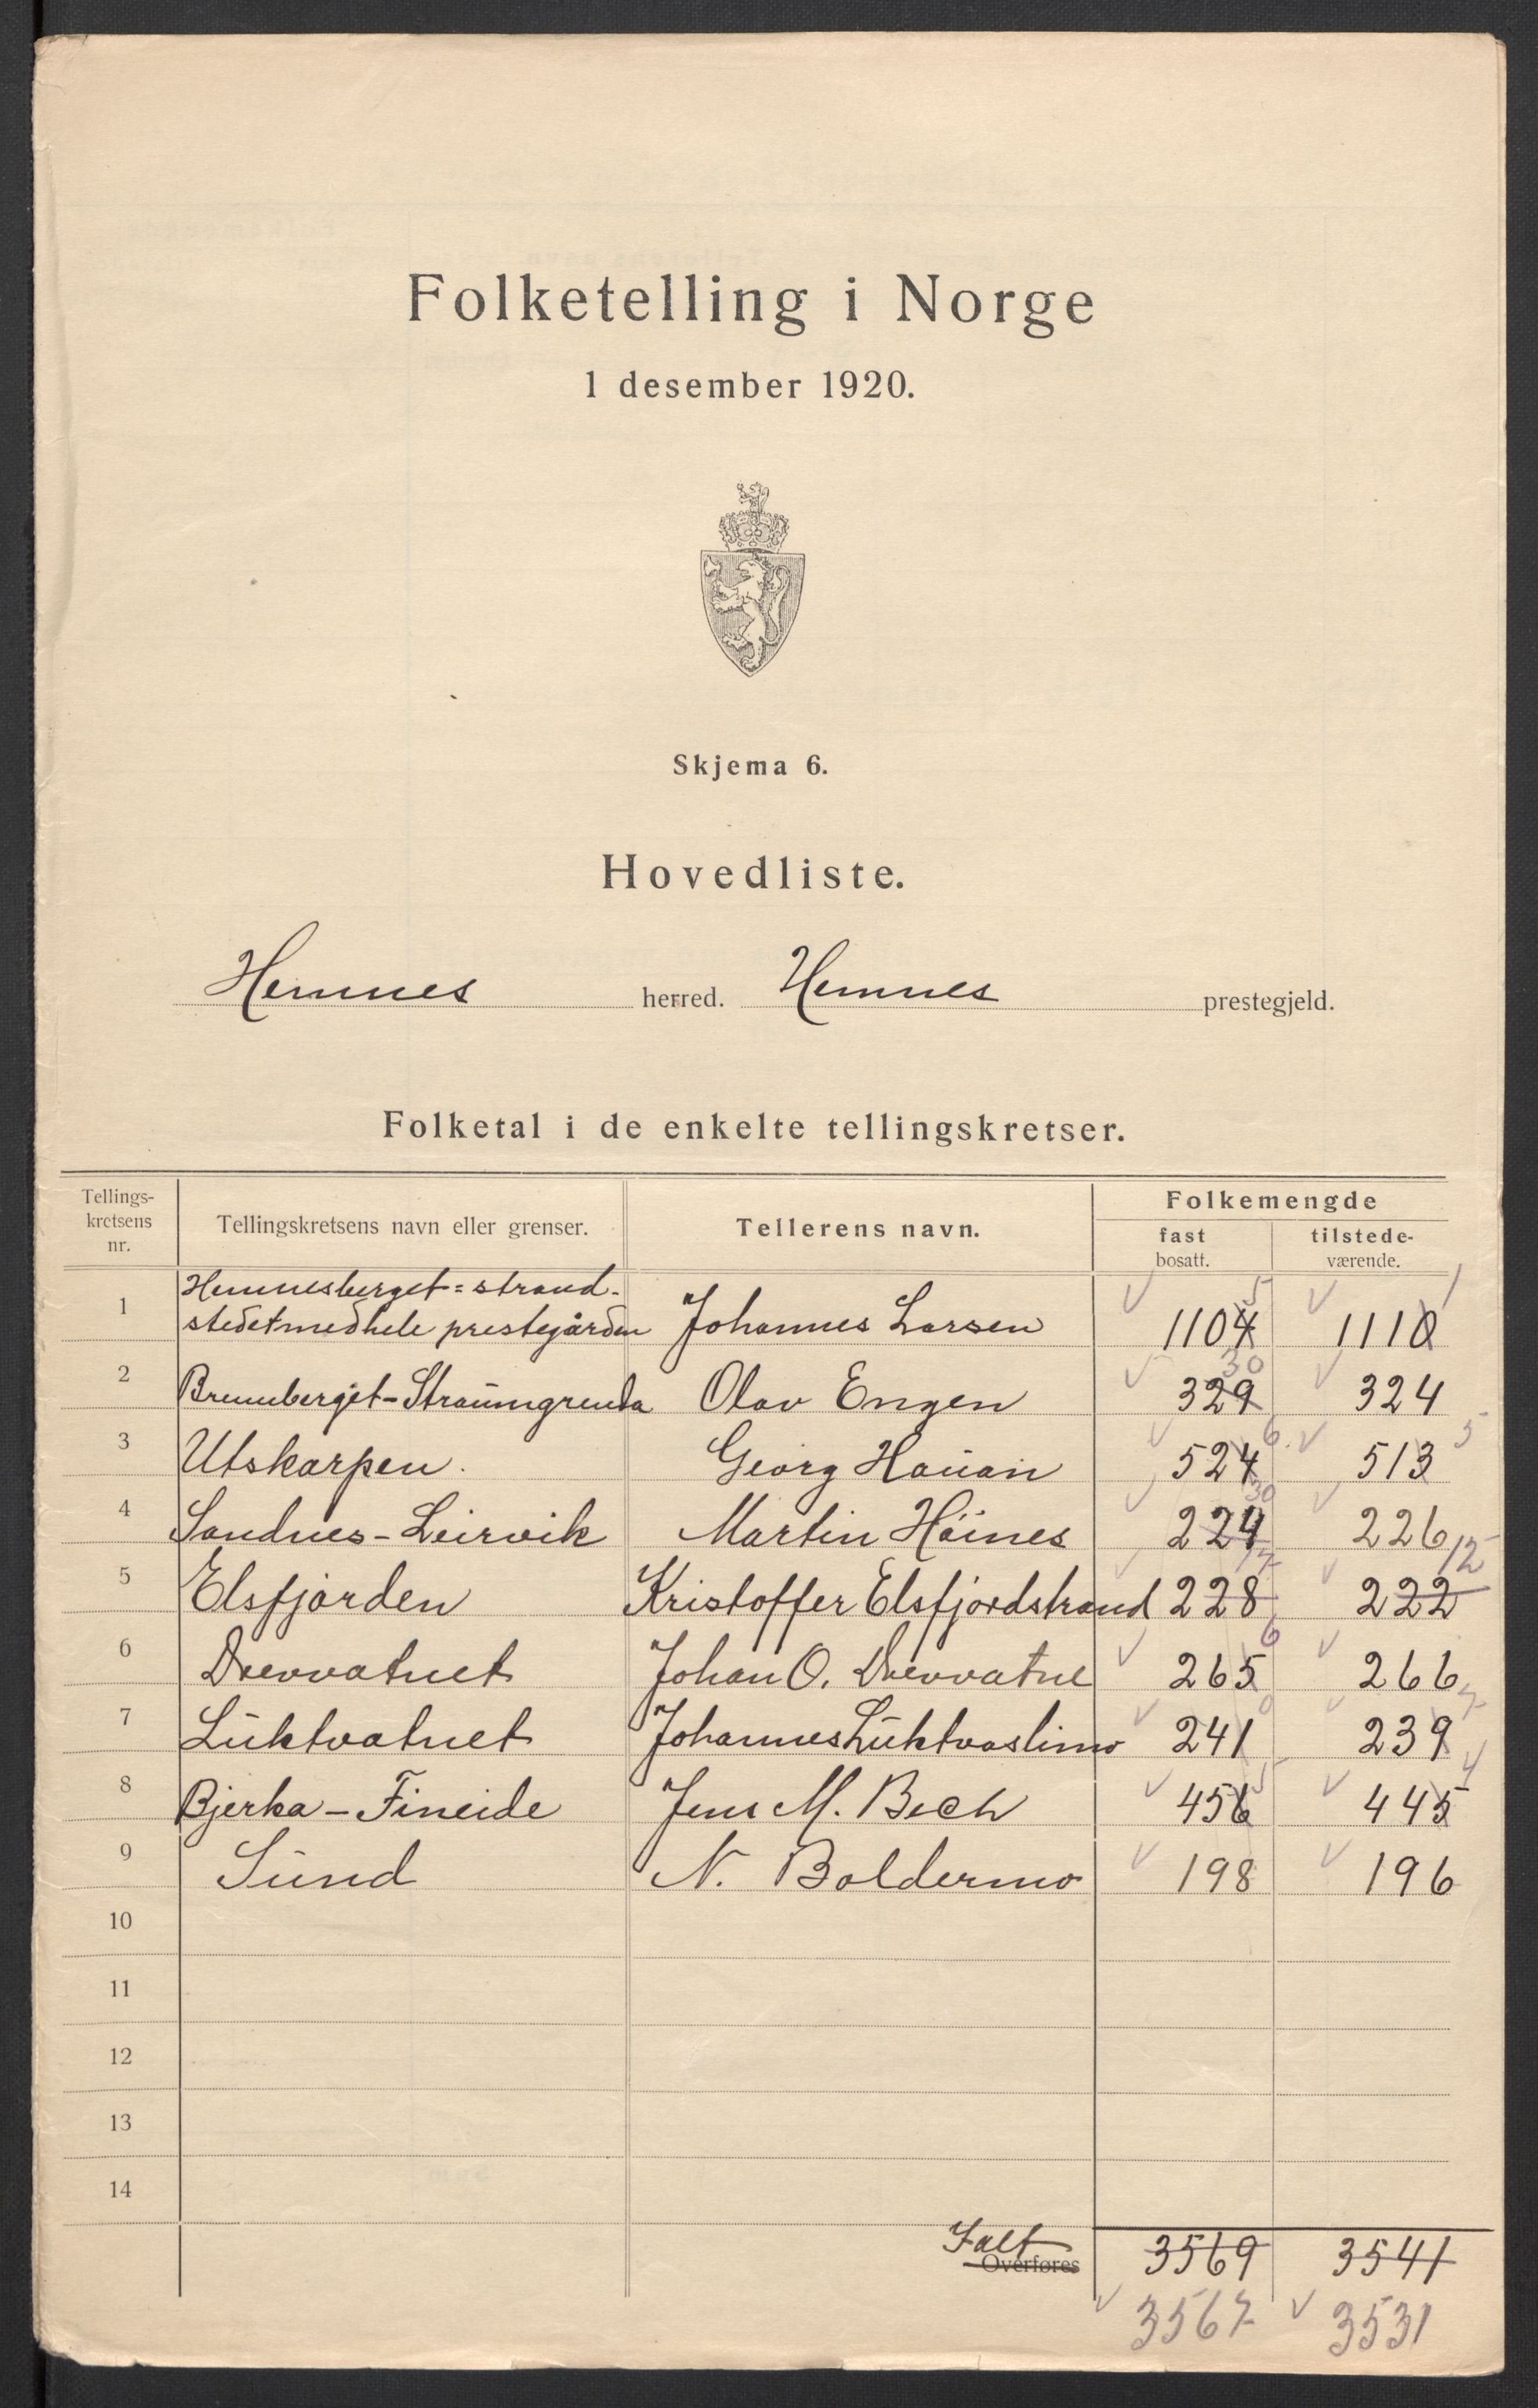 Folketelling i Norge
1 desember 1920.
Skjema 6.
Hovedliste.
Hemnes herred. Hemnes prestegjeld.
Folketal i de enkelte tellingskretser.
Tellings-
kretsens
nr.
Tellingskretsens navn eller grenser.
Tellerens navn.
Folkemengde
fast
bosatt.
tilstede-
værende.
1 Hemnesberget = strand-
stedet med hele prestegården Johannes Larsen 1104 5 1110 1
2 Brennberget-Straumgrenda Olav Engen 329 30 324
3 Utskarpen. Georg Hauan 524 6 513 5
4 Sandnes-Leirvik Martin Höines 224 30 226
5 Elsfjorden Kristoffer Elsfjordstrand 228 17 222 12
6 Drevvatnet Johan O. Drevvatne 265 6 266
7 Luktvatnet Johannes Luktvaslimo 241 0 239 7
8 Bjerka-Fineide Jens M. Bech 456 5 445 4
9 Sund N. Boldermo 198 196
10
11
12
13
14
Ialt
Overføres 3569 3541
3567 3531